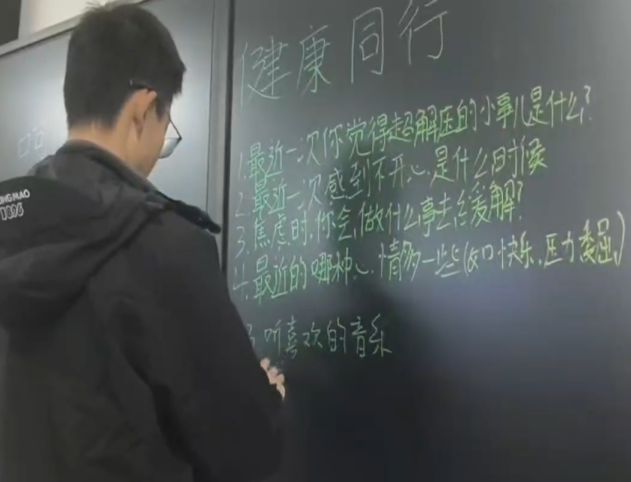 健康同行
1.最近一次你觉得超解压的小事儿是什么?
2.最近一次感到不开心是什么时候
3.焦虑时,你会做什么事去缓解?
4.最近的哪种心情多一些(如快乐、压力委屈)
3.听喜欢的音乐